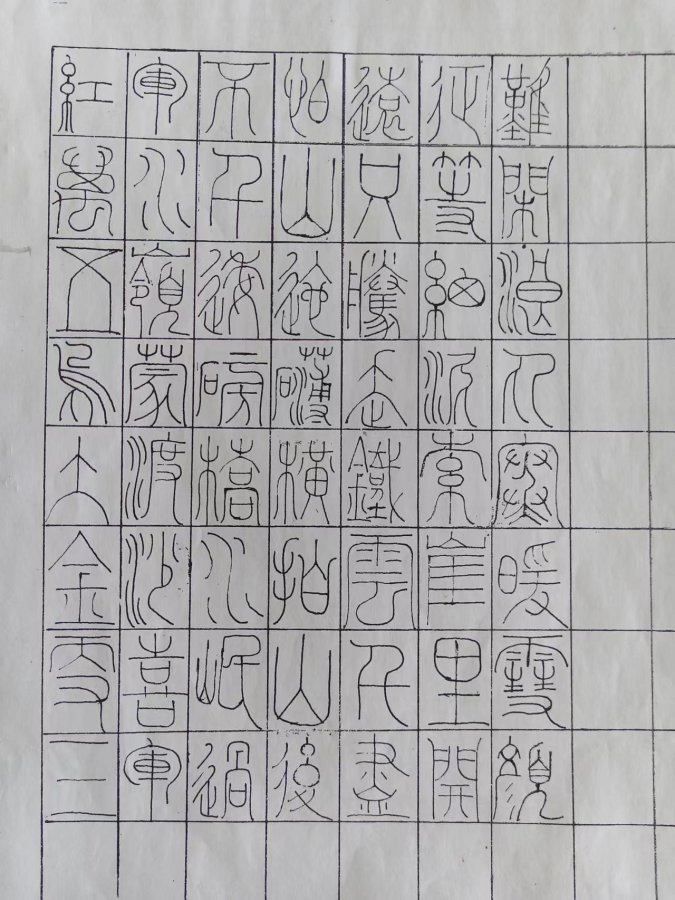 紅軍不怕遠征難
萬水千山只等閑
五嶺逶迤騰細浪
烏蒙磅礴走泥丸
大渡橋橫鐵索寒
金沙水拍雲崖暖
更喜岷山千里雪
三軍過後盡開顏